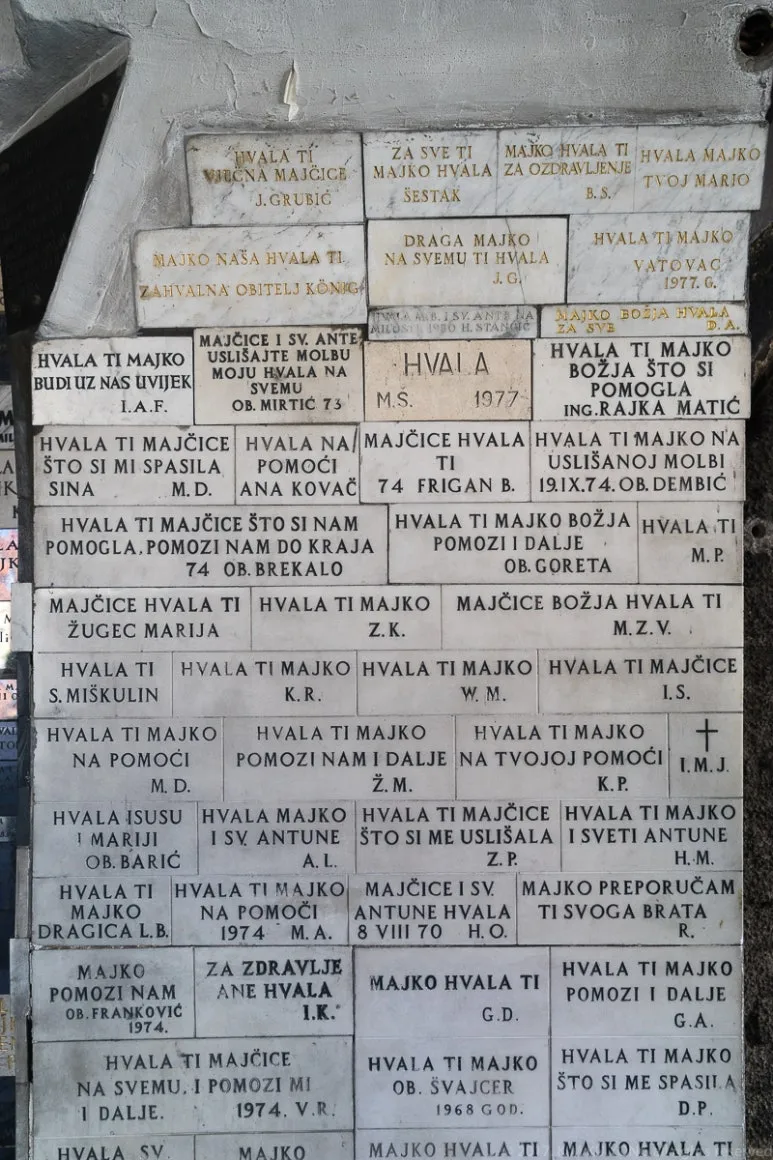 HVALA TI
VJEČNA MAJČICE
J. GRUBIĆ
ZA SVE TI
MAJKO HVALA
ŠESTAK
MAJKO HVALA TI
ZA OZDRAVLJENJE
B. S.
HVALA MAJKO
TVOJ MARIO
MAJKO NAŠA HVALA TI.
ZAHVALNA OBITELJ KÖNIG
DRAGA MAJKO
NA SVEMU TI HVALA
J. G.
HVALA TI MAJKO
VATOVAC
1977. G.
HVALA M.B. I SV. ANTE NA
MILOSTI 1980 H. STANČIĆ
MAJKO BOŽJA HVALA
ZA SVE D. A.
HVALA TI MAJKO
BUDI UZ NAS UVIJEK
I.A.F.
MAJČICE I SV. ANTE
USLIŠAJTE MOLBU
MOJU HVALA NA
SVEMU
OB. MIRTIĆ 73
HVALA
M.Š. 1977
HVALA TI MAJKO
BOŽJA ŠTO SI
POMOGLA
ING. RAJKA MATIĆ
HVALA TI MAJČICE
ŠTO SI MI SPASILA
SINA M. D.
HVALA NA
POMOĆI
ANA KOVAČ
MAJČICE HVALA
TI
74 FRIGAN B.
HVALA TI MAJKO NA
USLIŠANOJ MOLBI
19.IX.74. OB. DEMBIĆ
HVALA TI MAJČICE ŠTO SI NAM
POMOGLA, POMOZI NAM DO KRAJA
74 OB. BREKALO
HVALA TI MAJKO BOŽJA
POMOZI I DALJE
OB. GORETA
HVALA TI
M. P.
MAJČICE HVALA TI
ŽUGEC MARIJA
HVALA TI MAJKO
Z. K.
MAJČICE BOŽJA HVALA TI
M. Z. V.
HVALA TI
S. MIŠKULIN
HVALA TI MAJKO
K. R.
HVALA TI MAJKO
W. M.
HVALA TI MAJČICE
I. S.
HVALA TI MAJKO
NA POMOĆI
M. D.
HVALA TI MAJKO
POMOZI NAM I DALJE
Ž. M.
HVALA TI MAJKO
NA TVOJOJ POMOĆI
K. P.
I. M. J.
HVALA ISUSU
I MARIJI
OB. BARIĆ
HVALA MAJKO
I SV. ANTUNE
A. L.
HVALA TI MAJČICE
ŠTO SI ME USLIŠALA
Z. P.
HVALA TI MAJKO
I SVETI ANTUNE
H. M.
HVALA TI
MAJKO
DRAGICA L.B.
HVALA TI MAJKO
NA POMOĆI
1974 M. A.
MAJČICE I SV.
ANTUNE HVALA
8 VIII 70 H. O.
MAJKO PREPORUČAM
TI SVOGA BRATA
R.
MAJKO
POMOZI NAM
OB. FRANKOVIĆ
1974.
ZA ZDRAVLJE
ANE HVALA
I.K.
MAJKO HVALA TI
G.D.
HVALA TI MAJKO
POMOZI I DALJE
G.A.
HVALA TI MAJČICE
NA SVEMU, I POMOZI MI
I DALJE. 1974. V.R.
HVALA TI MAJKO
OB. ŠVAJCER
1968 GOD.
HVALA TI MAJKO
ŠTO SI ME SPASILA
D.P.
HVALA SV.
MAJKO
MAJKO HVALA TI
MAJKO HVALA TI